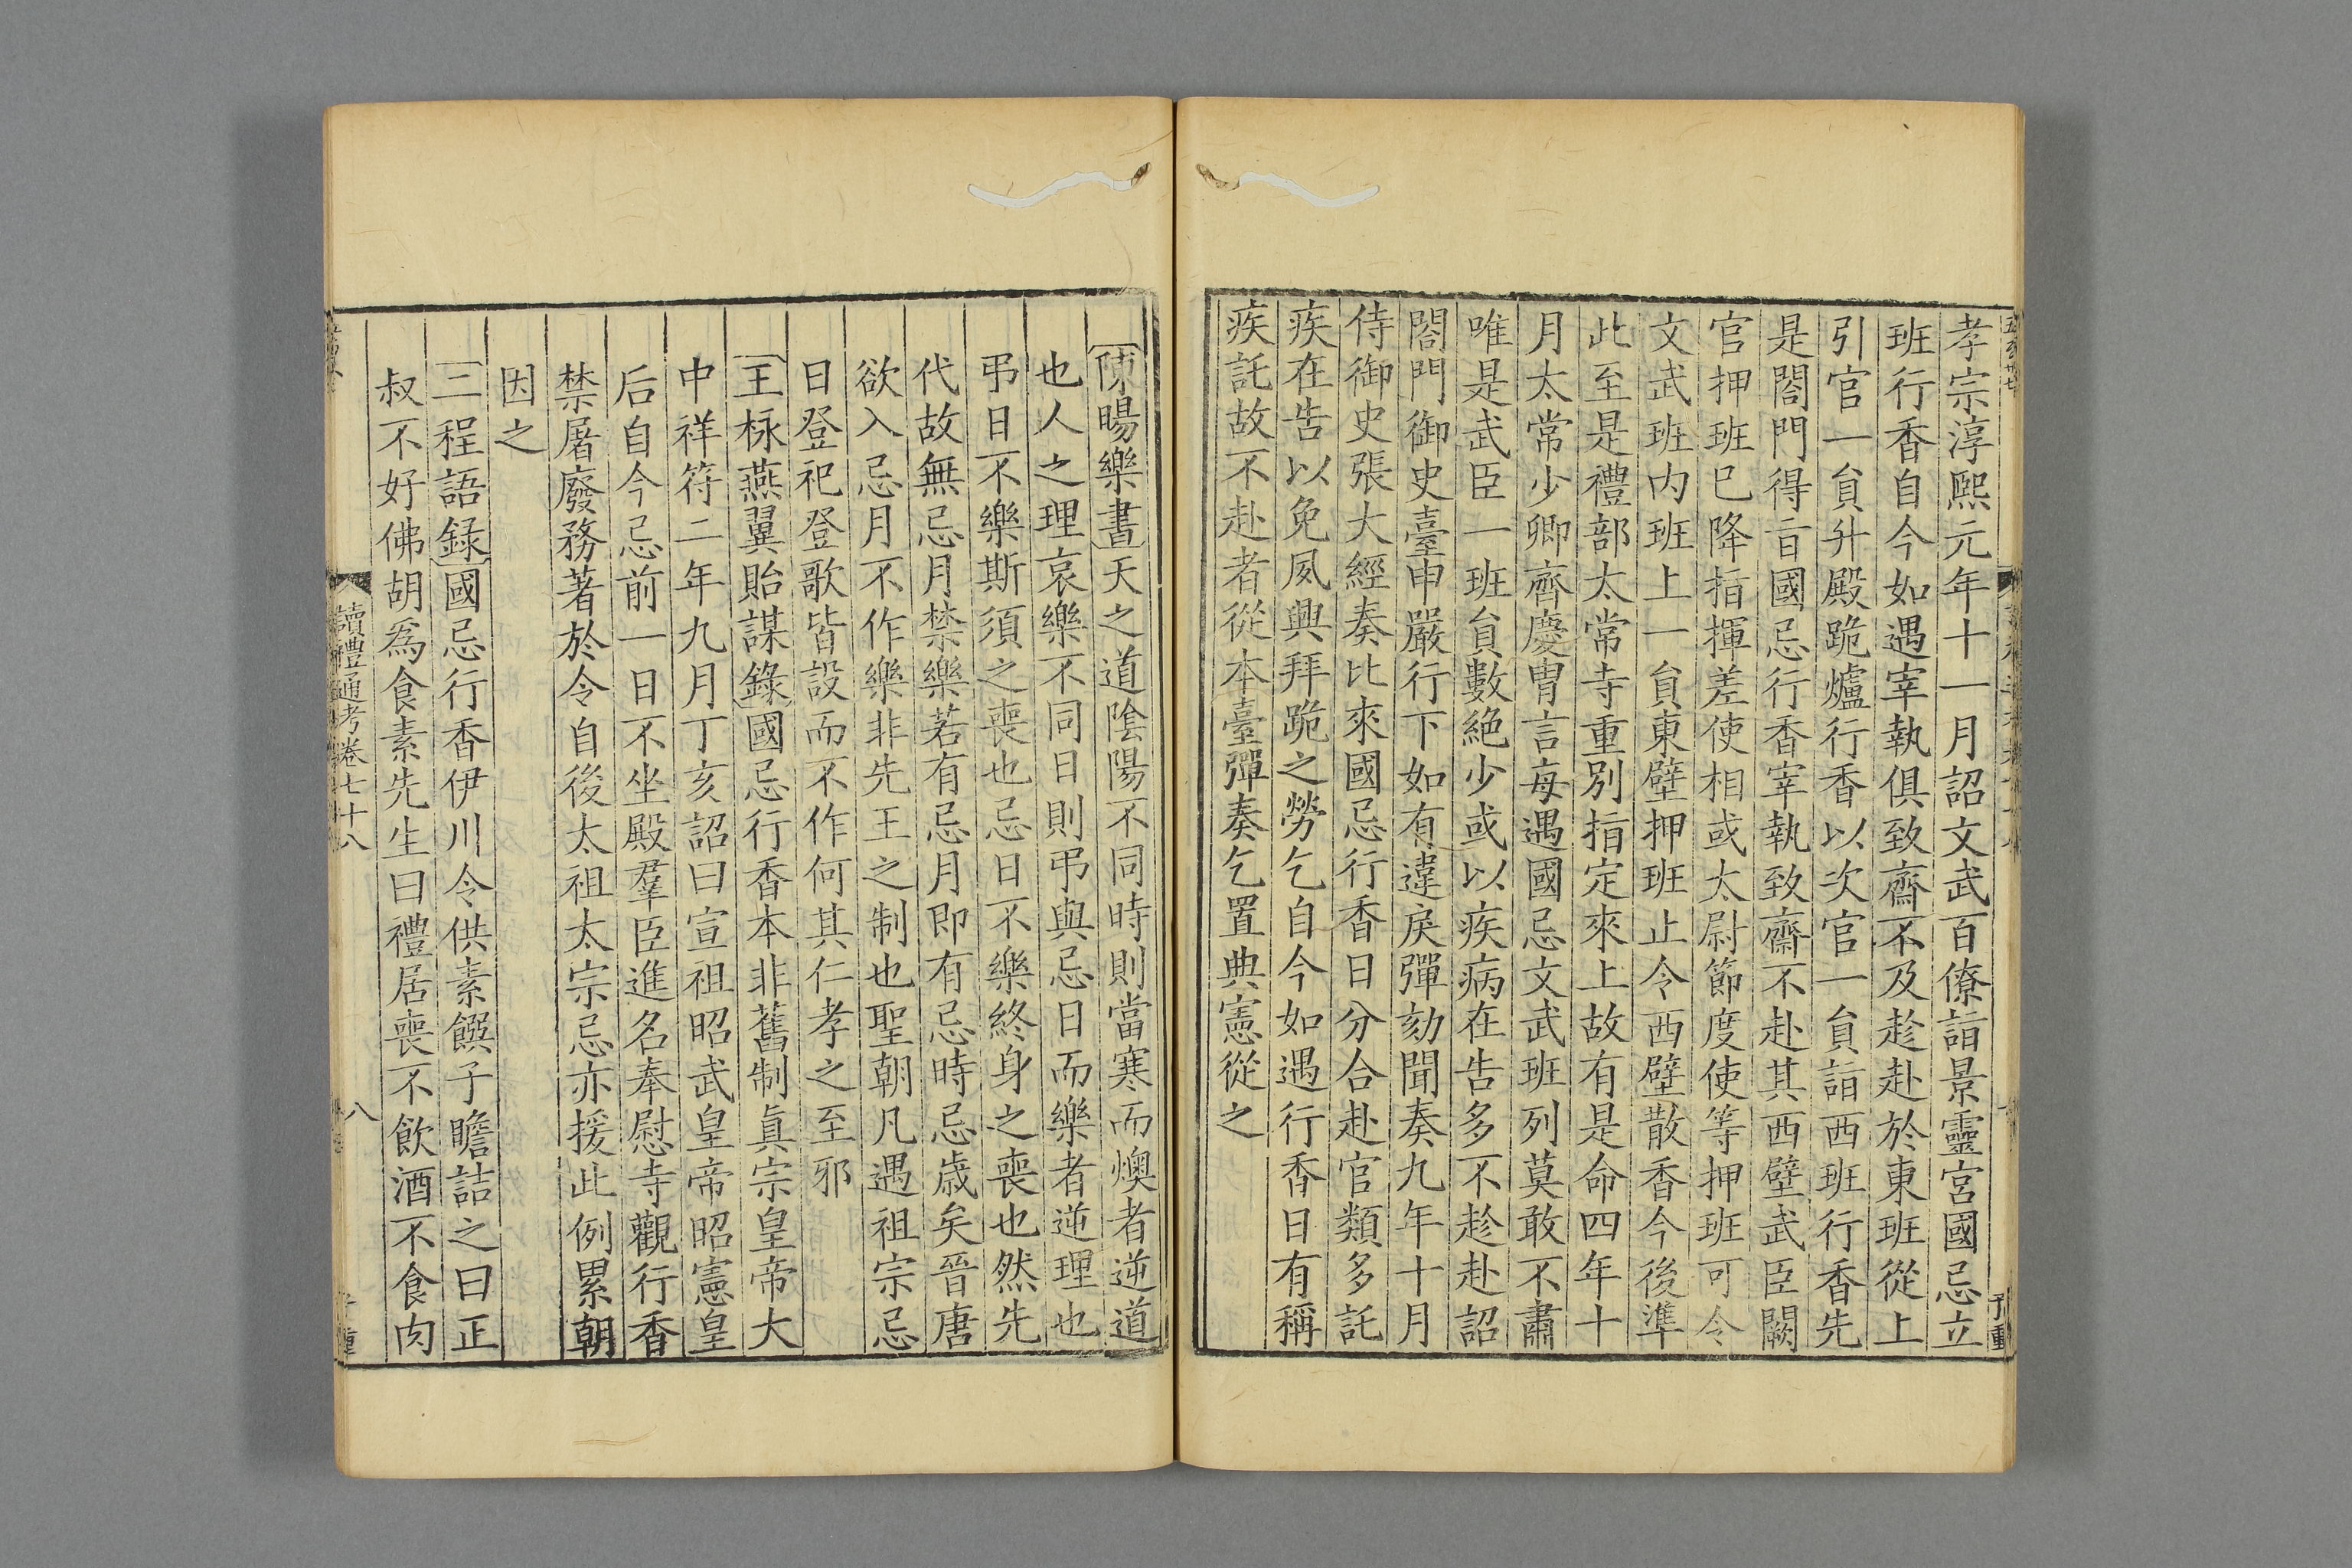 孝宗淳熙元年十一月詔文武百僚詣景靈宮國忌立
班行香自今如遇宰執俱致齋不及趁赴於東班從上
引官一負升殿跪爐行香以次官一負詣西班行香先
是閤門得旨國忌行香宰執致齋不赴其西壁武臣闕
官押班已降指揮差使相或太尉節度使等押班可令
文武班内班上一負東壁押班止令西壁散香今後準
此至是禮部太常寺重別指定來上故有是命四年十
月太常少卿齊慶胄言每遇國忌文武班列莫敢不肅
唯是武臣一班負數絶少或以疾病在告多不趁赴詔
閤門御史臺申嚴行下如有違戾彈劾聞奏九年十月
侍御史張大經奏比來國忌行香日分合赴官類多託
疾在告以免夙興拜跪之勞乞自今如遇行香日有稱
疾託故不赴者從本臺彈奏乞置典憲從之
陳暘樂書天之道陰陽不同時則當寒而燠者逆道
也人之理哀樂不同日則弔與忌日而樂者逆理也
弔日不樂斯須之喪也忌日不樂終身之喪也然先
代故無忌月禁樂若有忌月即有忌時忌歲矣晉唐
欲入忌月不作樂非先王之制也聖朝凡遇祖宗忌
日登祀登歌皆設而不作何其仁孝之至邪
王栐燕翼貽謀錄國忌行香本非舊制真宗皇帝大
中祥符二年九月丁亥詔曰宣祖昭武皇帝昭憲皇
后自今忌前一日不坐殿羣臣進名奉慰寺觀行香
禁屠廢務著於令自後太祖太宗忌亦援此例累朝
因之
二程語録國忌行香伊川令供素饌子瞻詰之曰正
叔不好佛胡爲食素先生曰禮居喪不飲酒不食肉
讀禮通考卷七十八
八